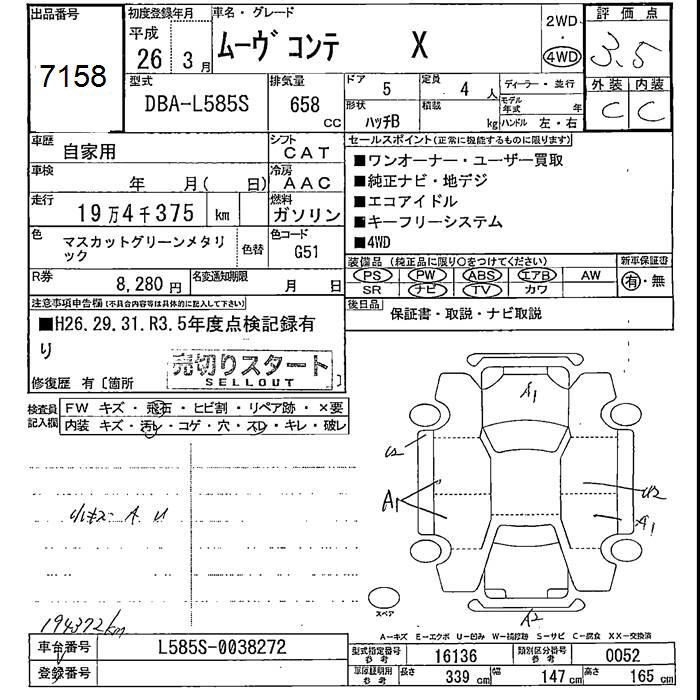 出品番号
7158
初度登録年月
平成
26 3月
車名・グレード
ムーヴ コンテ X
2WD
・
4WD
評価点
3.5
外装 内装
C C
型式
DBA-L585S
排気量
658
CC
ドア 5
定員 4 人
ディーラー・並行
モデル年式 年
形状 ハッチB
積載 kg
ハンドル 左・右
車歴 自家用
シフト CAT
車検 年 月( 日)
冷房 AAC
走行 19万4千375 km
燃料 ガソリン
色 マスカットグリーンメタリック
色替
色コード G51
R券 8,280円
名変通知期限 月 日
セールスポイント(正常に機能するものに限ります)
■ワンオーナー・ユーザー買取
■純正ナビ・地デジ
■エコアイドル
■キーフリーシステム
■4WD
装備品 (純正品に限り○をつけてください)
PS PW ABS エアB AW
SR ナビ TV カワ
新車保証書
有・無
後日品 保証書・取説・ナビ取説
注意事項申告欄(不具合内容等は具体的に記入して下さい)
■H26.29.31.R3.5年度点検記録有
り
売切りスタート
SELLOUT
修復歴 有〔箇所 〕
検査員記入欄
FW キズ・飛石・ヒビ割・リペア跡・×要
内装 キズ・汚レ・コゲ・穴・スレ・キレ・破レ
小キズ A U
194372km
A1
U2
A1
U2
A1
A2
スペア
A-キズ E-エクボ U-凹み W-補修跡 S-サビ C-腐食 XX-交換済
車台番号 L585S-0038272
登録番号
型式指定番号 参考 16136
類別区分番号 参考 0052
車庫証明用 参考 長さ 339cm 幅 147cm 高さ 165cm